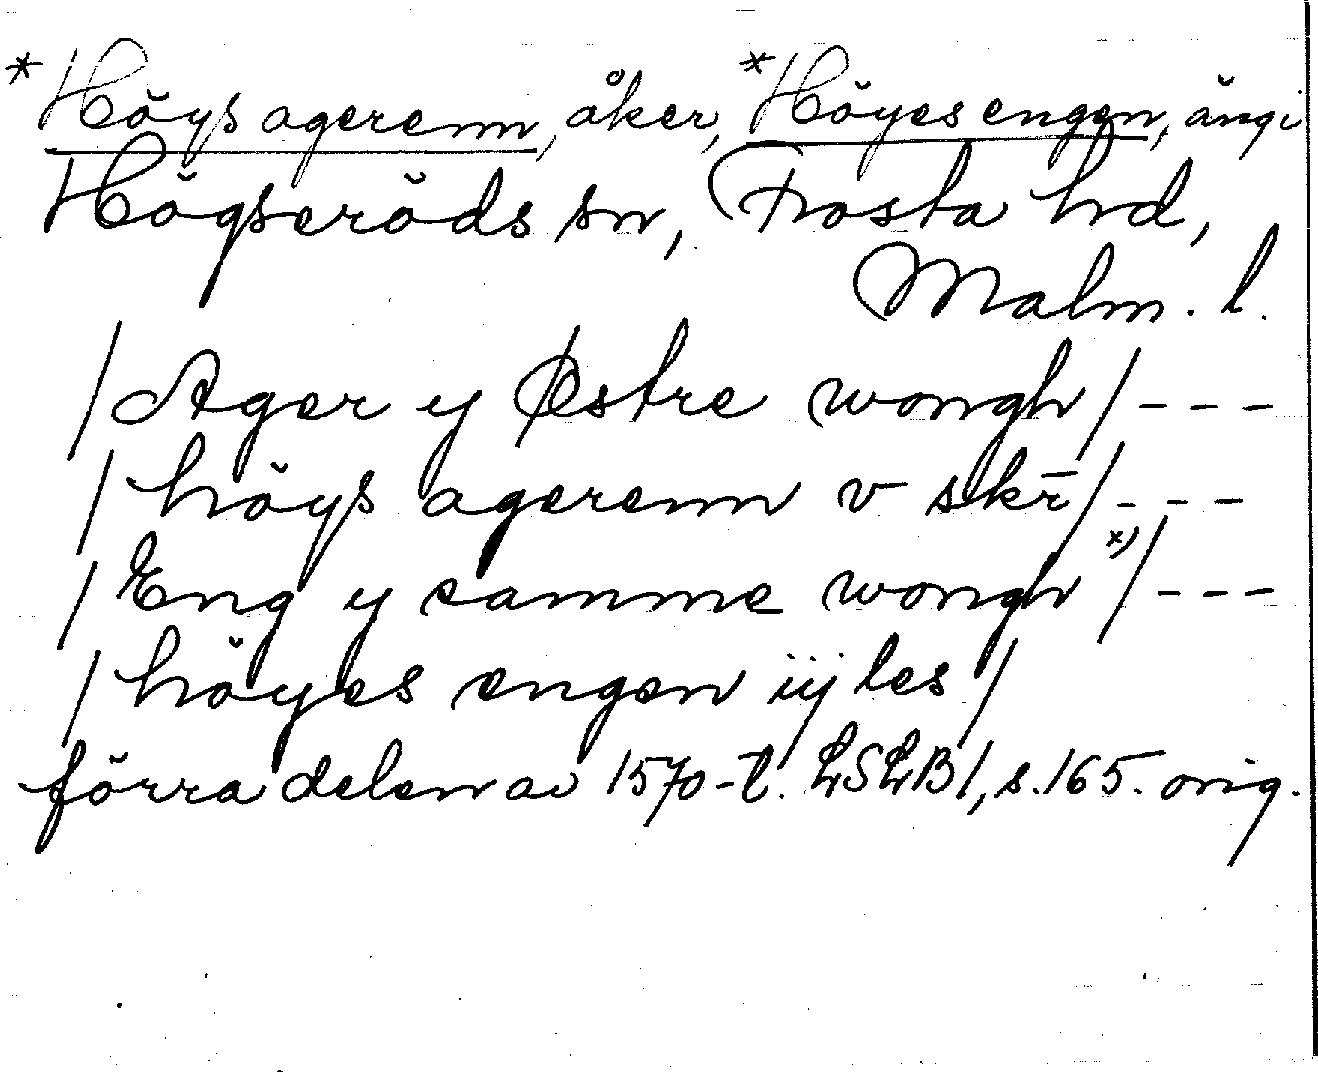 *Höys agerenn, åker, *Höyes engen, äng i
Högseröds sn, Frosta hd,
Malm. l.
/Ager y Østre wongh/ - - -
/höys agerenn v skr̄/ - - -
/Eng y samme wongh *)/ - - -
/höyes engen iij les/
förra delen av 1570-t. LSLB 1, s. 165. orig.